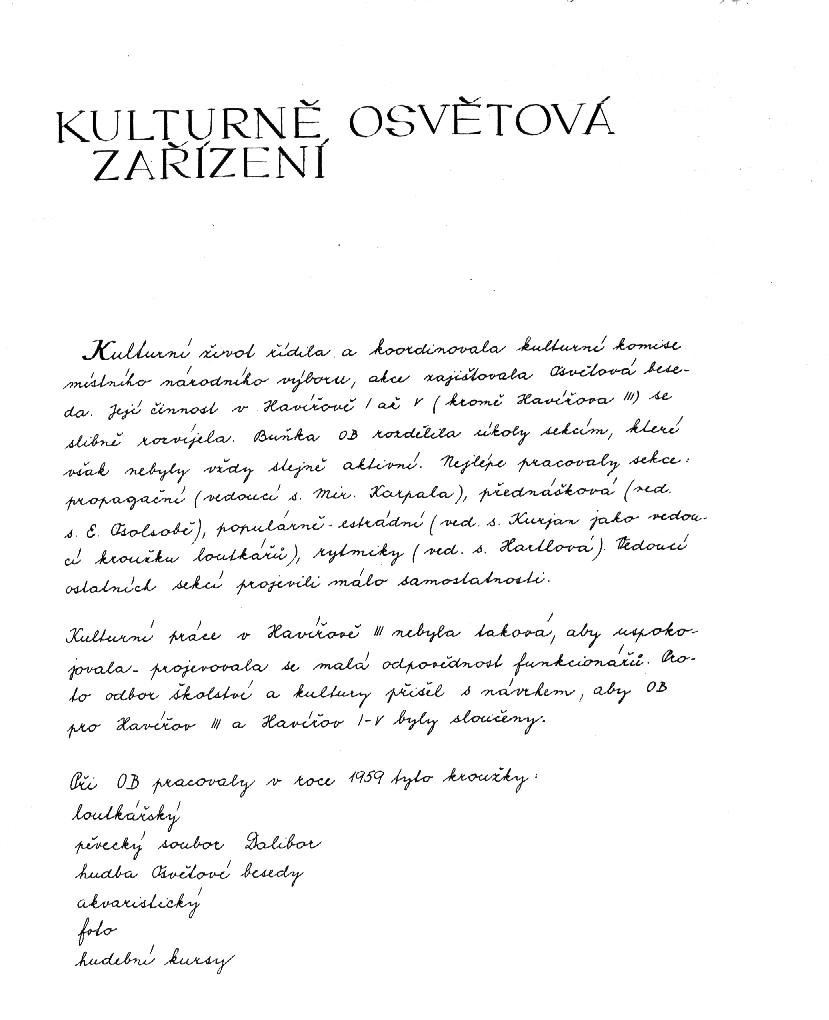 KULTURNĚ OSVĚTOVÁ
ZAŘÍZENÍ
Kulturní život řídila a koordinovala kulturní komise
místního národního výboru, akce zajišťovala Osvětová bese-
da. Její činnost v Havířově I až V (kromě Havířova III) se
slibně rozvíjela. Buňka OB rozdělila úkoly sekcím, které
však nebyly vždy stejně aktivní. Nejlépe pracovaly sekce:
propagační (vedoucí s. Mir. Karpala), přednášková (ved.
s. E. Osolsobě), populárně-estrádní (ved. s. Kurjan jako vedou-
cí kroužku loutkářů), rytmiky (ved. s. Hartlová). Vedoucí
ostatních sekcí projevili málo samostatnosti.
Kulturní práce v Havířově III nebyla taková, aby uspoko-
jovala - projevovala se malá odpovědnost funkcionářů. Pro-
to odbor školství a kultury přišel s návrhem, aby OB
pro Havířov III a Havířov I-V byly sloučeny.
Při OB pracovaly v roce 1959 tyto kroužky:
loutkářský
pěvecký soubor Dalibor
hudba Osvětové besedy
akvaristický
foto
hudební kursy